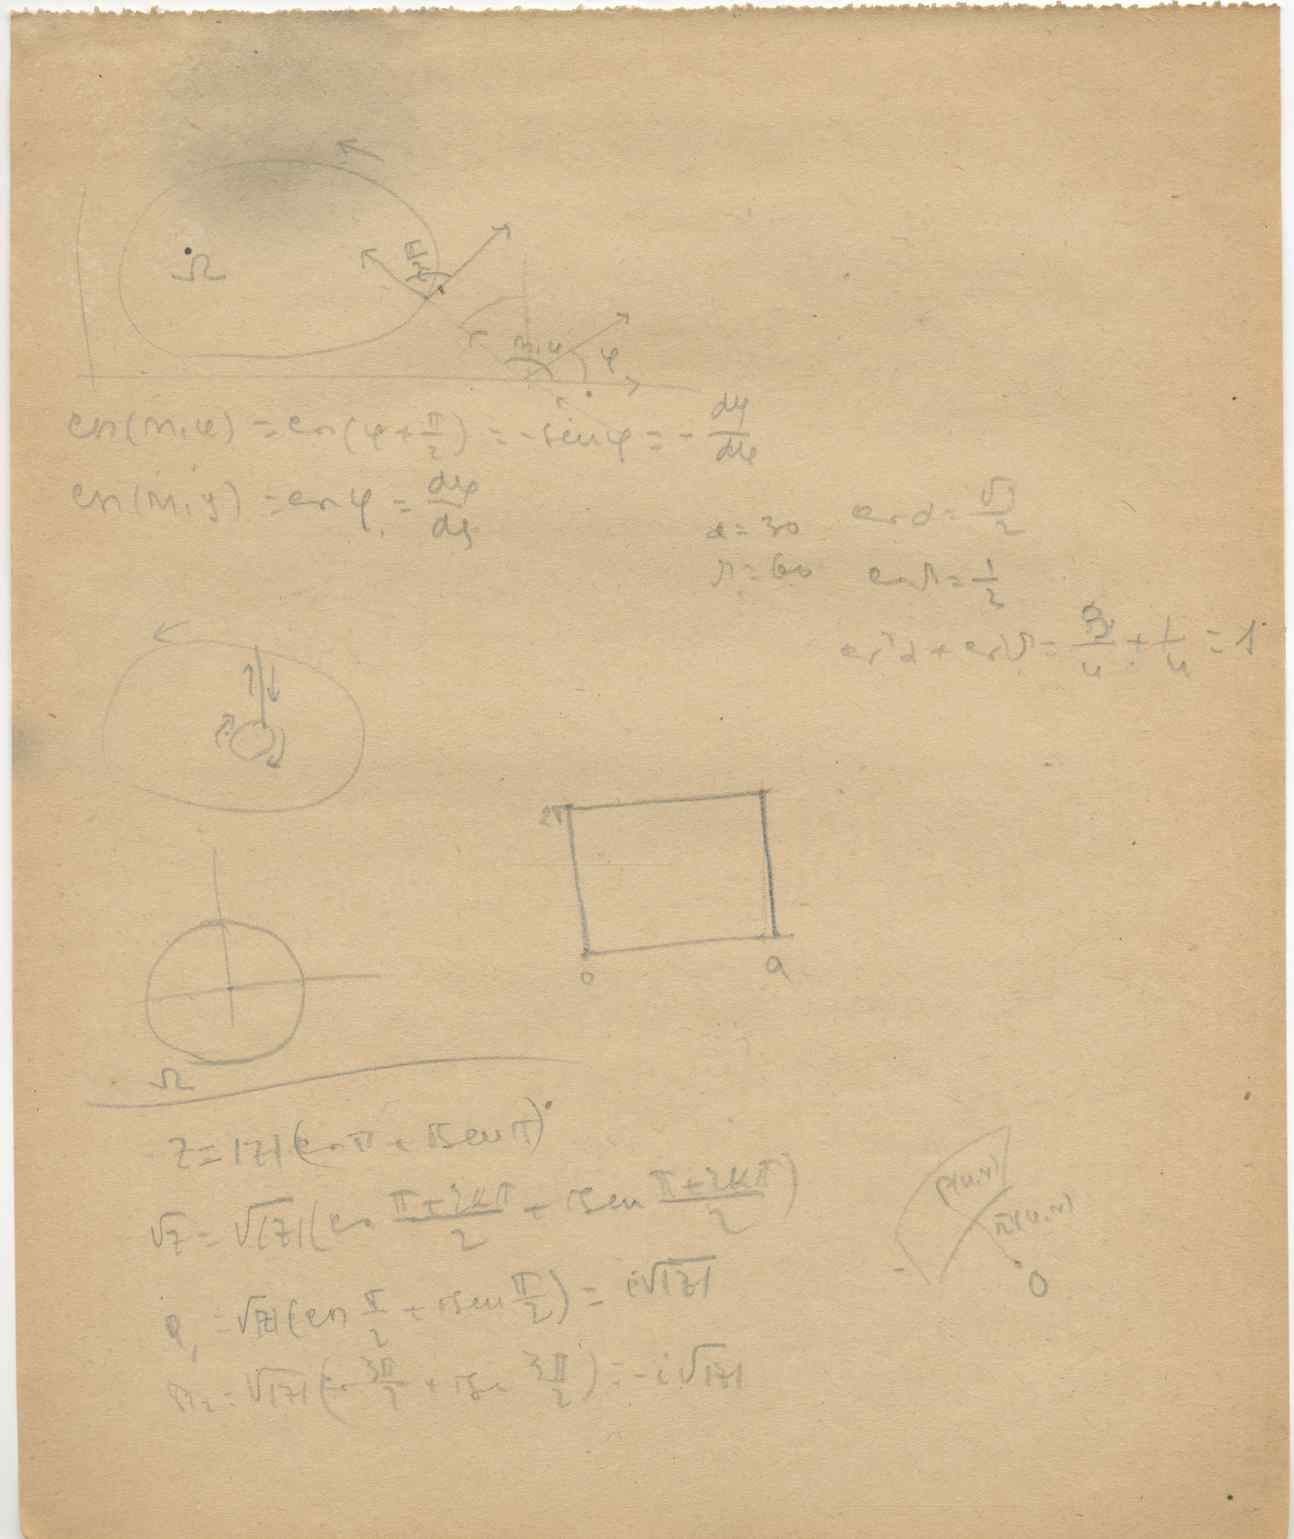 Ω
π/2
n,x
φ
cos(n,x) = cos(φ + π/2) = -sen φ = - dy/ds
cos(n,y) = cos φ = dx/ds
α = 30 cos α = √3/2
β = 60 cos β = 1/2
cos²α + cos²β = 3/4 + 1/4 = 1
2π
0 a
Ω
z = |z|(cos π + i sen π)
√z = √|z| (cos (π+2kπ)/2 + i sen (π+2kπ)/2)
= √|z| (cos π/2 + i sen π/2) = i√|z|
= √|z| (cos 3π/2 + i sen 3π/2) = -i√|z|
P(u,v)
n(u,v)
O